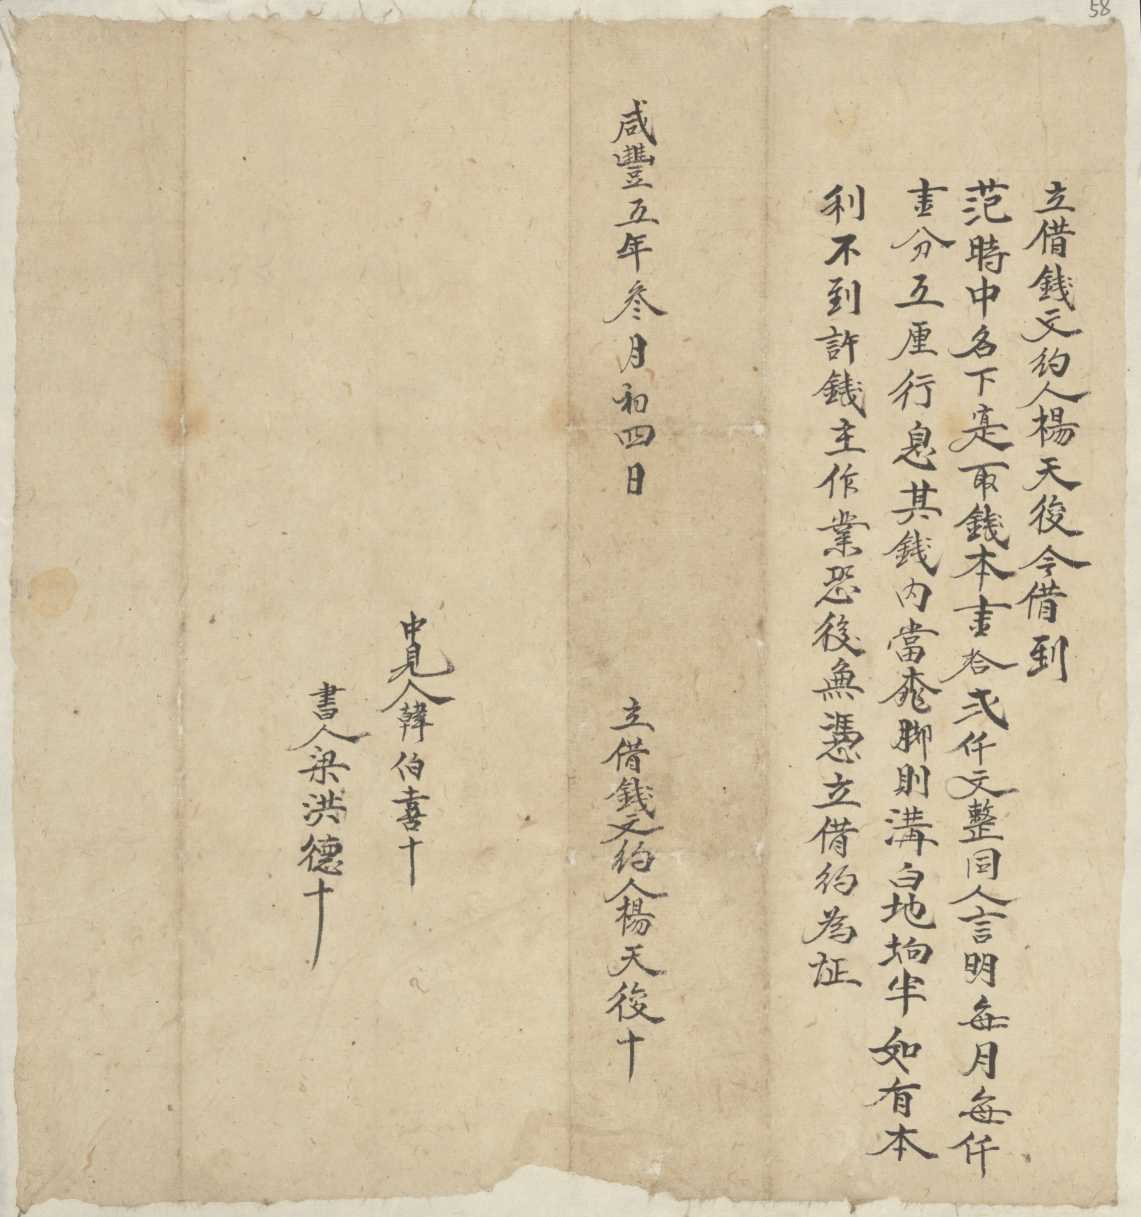 58
立借錢文約人楊天後今借到
范時中名下寔取錢本壹拾弍仟文整同人言明每月每仟
壹分五厘行息其錢內當𡋾脚則溝白地垧半如有本
利不到許錢主作業恐後無憑立借約為証
咸豐五年叄月初四日
立借錢文約人楊天後十
中見人韓伯喜十
書人梁洪德十